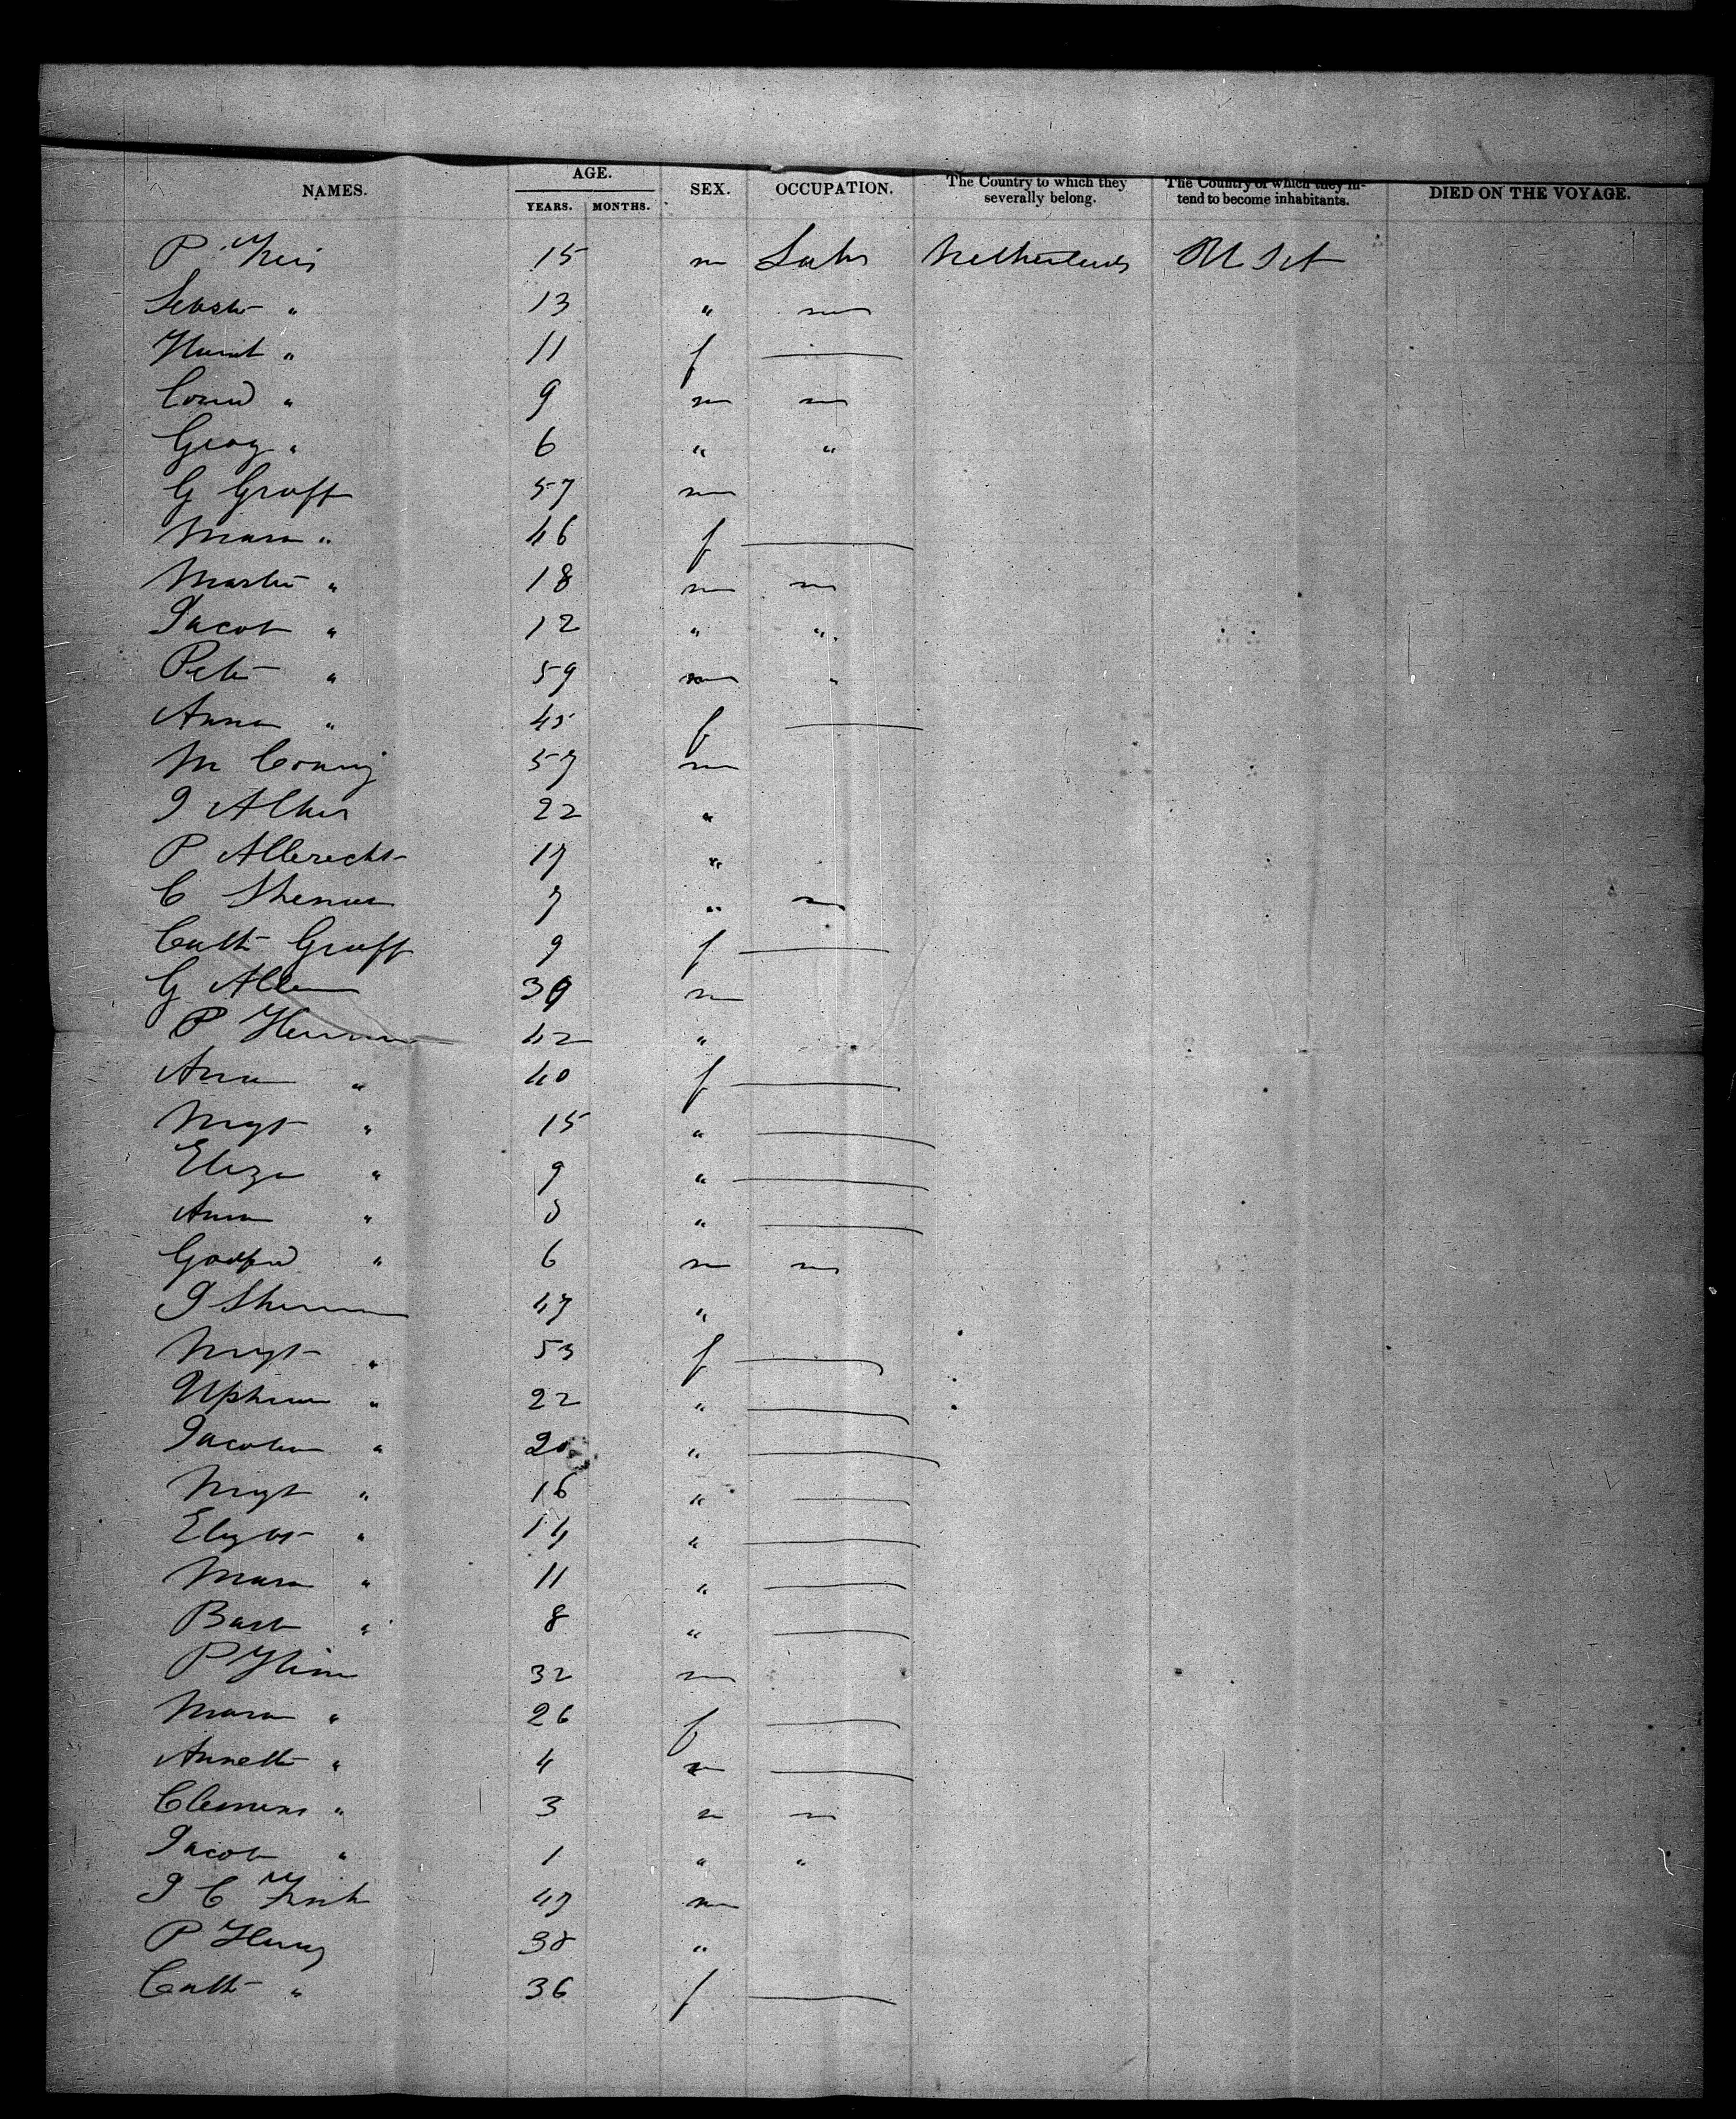 NAMES. AGE. SEX. OCCUPATION. The Country to which they severally belong. The Country of which they intend to become inhabitants. DIED ON THE VOYAGE.
YEARS. MONTHS.
P 15 m Labr Netherlands U St
Sebast " 13 " m
11 f
Conrd " 9 m m
Georg " 6 " "
G Graff 57 m
Mara " 46 f
Martin " 18 m m
Jacob " 12 " "
Peter " 59 m "
Anna " 45 f
M 57 m
J Alber 22 "
P Albrecht 17 "
C Sherman 7 " m
Cath Graff 9 f
G Allen 39 m
P Herman 42 "
Anna " 40 f
Mgt " 15 "
Eliza " 9 "
Anna " 8 "
Godfrd " 6 m m
J Sherman 47 "
Mgt " 53 f
" 22 "
Jacobena " 20 "
Mgt " 16 "
Elizbt " 14 "
Mara " 11 "
Barb " 8 "
P 32 m
Mara " 26 f
Annette " 4 m
Clemens " 3 m m
Jacob " 1 " "
J C 47 m
P Henry 38 "
Cath " 36 f